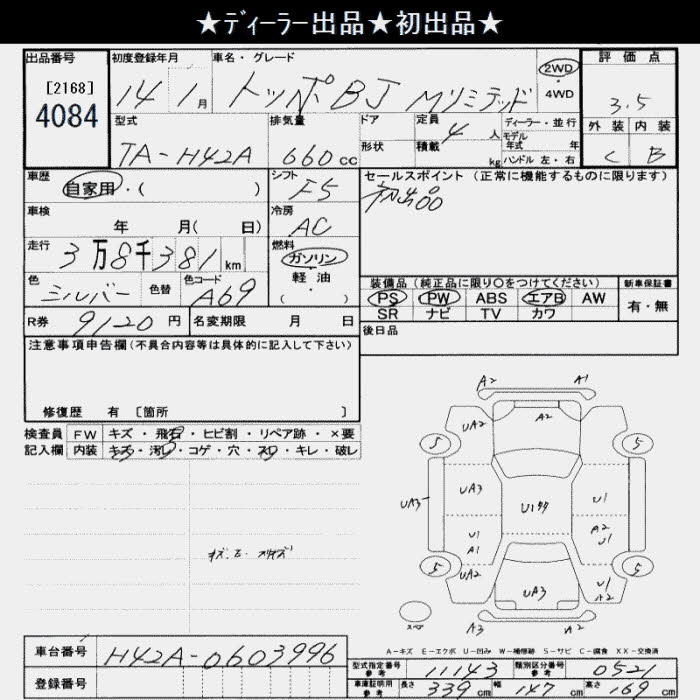 ★ディーラー出品★初出品★
出品番号 初度登録年月 車名・グレード 評価点
[2168] 14年 1月 トッポBJ Mリミテッド 2WD 4WD 3.5
4084
型式 排気量 ドア 定員 4人 ディーラー・並行 外装 内装
TA-H42A 660cc 形状 積載 kg モデル年式 年 ハンドル 左・右 C B
車歴 自家用・( ) シフト F5 セールスポイント (正常に機能するものに限ります)
初出品
車検 年 月( 日) 冷房 AC
走行 3万8千381km 燃料 ガソリン 軽油 ( ・ )
色 シルバー 色替 色コード A69
装備品(純正品に限り○をつけてください) 新車保証書
PS PW ABS エアB AW 有・無
SR ナビ TV カワ
R券 9120円 名変期限 月 日 後日品
注意事項申告欄(不具合内容等は具体的に記入して下さい)
修復歴 有 [箇所 ]
検査員 FW キズ・飛石・ヒビ割・リペア跡・×要
記入欄 内装 キズ・汚レ・コゲ・穴・スレ・キレ・破レ
A2 A1
UA2 A2
5 5
UA3 UA3 U1
U1 A1 A2 U1
5 5
UA2 UA3 U1 A2
A3 A2
スペア
A-キズ E-エクボ U-凹み W-補修跡 S-サビ C-腐食 XX-交換済
車台番号 H42A-0603996
登録番号
型式指定番号 参考 11143 類別区分番号 参考 0521
車庫証明用 参考 長さ 339cm 幅 147cm 高さ 169cm